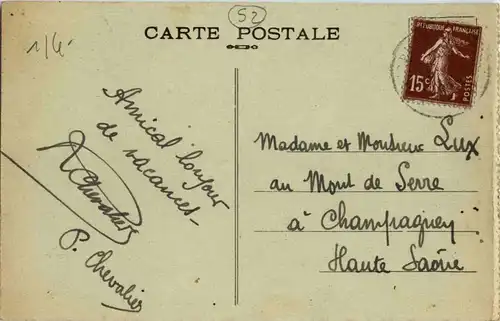 52
CARTE POSTALE
1/6
REPUBLIQUE FRANÇAISE
15c
POSTES
Amical bonjour
de vacances -
Chevalier
P. Chevalier
Madame et Monsieur Lux
au Mont de Serre
à Champagney
Haute Saône